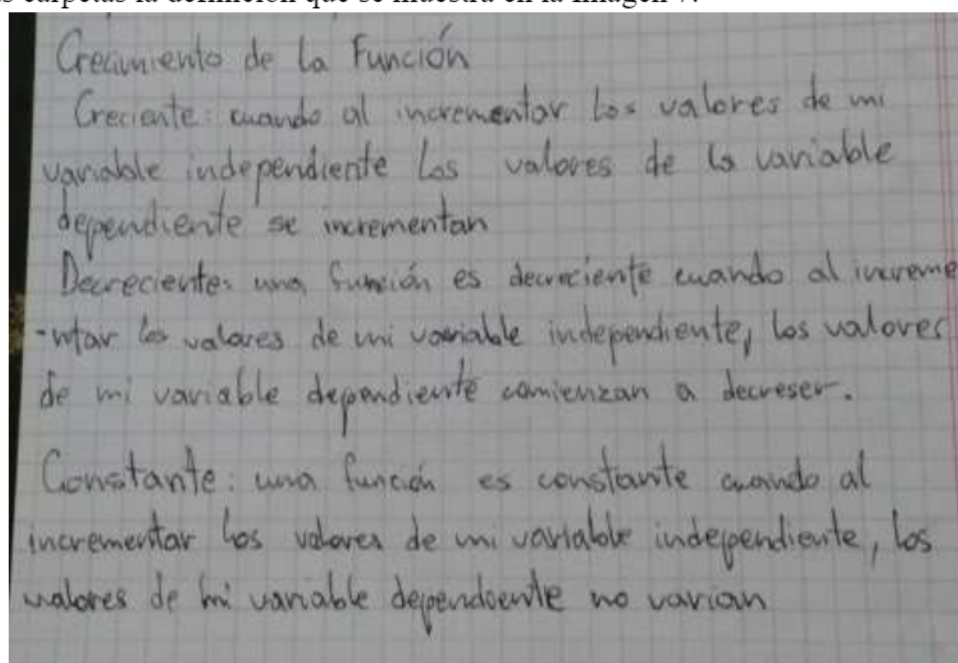 sus carpetas la definición que se muestra en la Imagen 7.
Crecimiento de la Función
Creciente: cuando al incrementar los valores de mi
variable independiente los valores de la variable
dependiente se incrementan
Decreciente: una función es decreciente cuando al increme
-ntar los valores de mi variable independiente, los valores
de mi variable dependiente comienzan a decreser.
Constante: una función es constante cuando al
incrementar los valores de mi variable independiente, los
valores de mi variable dependiente no varian